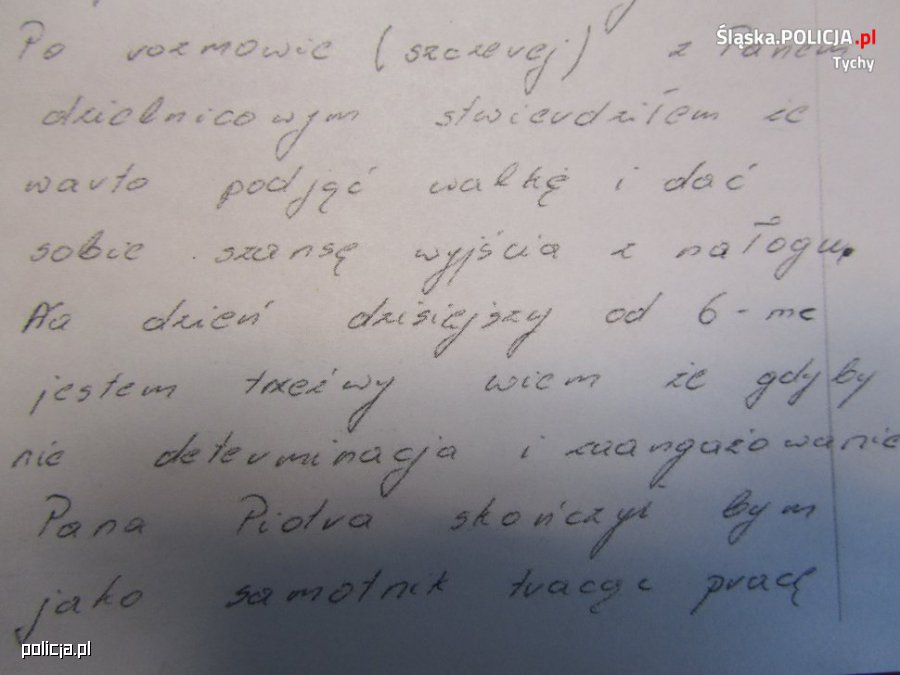 Śląska.POLICJA.pl
Tychy
Po rozmowie (szczerej) z Panem
dzielnicowym stwierdziłem że
warto podjąć walkę i dać
sobie szansę wyjścia z nałogu.
Na dzień dzisiejszy od 6-mc
jestem trzeźwy wiem że gdyby
nie determinacja i zaangażowanie
Pana Piotra skończył bym
jako samotnik tracąc pracę
policja.pl